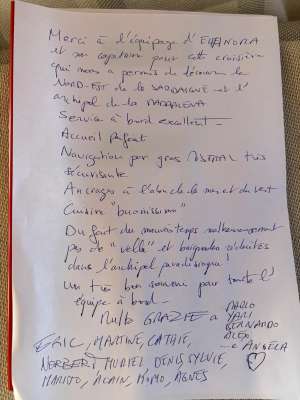 Merci à l'équipage d'ELEANDRA
et son capitaine pour cette croisière
qui nous a permis de découvrir le
NORD-EST de la SARDAIGNE et l'
archipel de la MADDALENA
Service à bord excellent
Accueil parfait
Navigation par gros MISTRAL très
sécurisante
Ancrages à l'abri de la mer et du vent
Cuisine "buonissima"
Du fait du mauvais temps malheureusement
pas de "vella" et baignades réduites
dans l'archipel paradisiaque!
Un très bon souvenir pour toute l'
équipe à bord
Multo GRAZIE a PABLO
YARI
BERNARDO
ALEX
e ANGELA
ERIC, MARTINE, CATHIE,
NORBERT MURIEL DENIS SYLVIE,
ALAIN, MOMO, AGNES